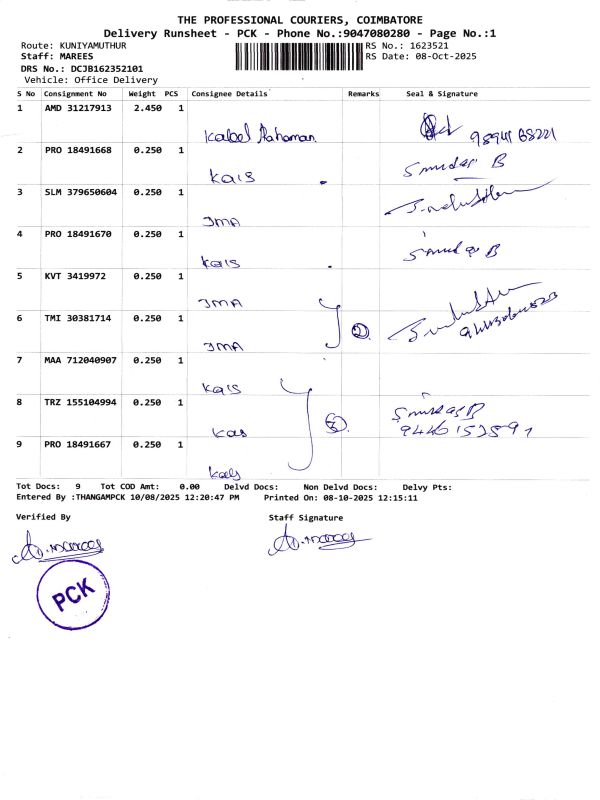 THE PROFESSIONAL COURIERS, COIMBATORE
Delivery Runsheet - PCK - Phone No.:9047080280 - Page No.:1
Route: KUNIYAMUTHUR RS No.: 1623521
Staff: MAREES RS Date: 08-Oct-2025
DRS No.: DCJB162352101
Vehicle: Office Delivery
S No Consignment No Weight PCS Consignee Details Remarks Seal & Signature
1 AMD 31217913 2.450 1
Rahaman
2 PRO 18491668 0.250 1
Kais B
3 SLM 379650604 0.250 1
JMA
4 PRO 18491670 0.250 1
Kais B
5 KVT 3419972 0.250 1
JMA
6 TMI 30381714 0.250 1
JMA
7 MAA 712040907 0.250 1
Kais
8 TRZ 155104994 0.250 1
Kais
9 PRO 18491667 0.250 1
Tot Docs: 9 Tot COD Amt: 0.00 Delvd Docs: Non Delvd Docs: Delvy Pts:
Entered By :THANGAMPCK 10/08/2025 12:20:47 PM Printed On: 08-10-2025 12:15:11
Verified By Staff Signature
PCK